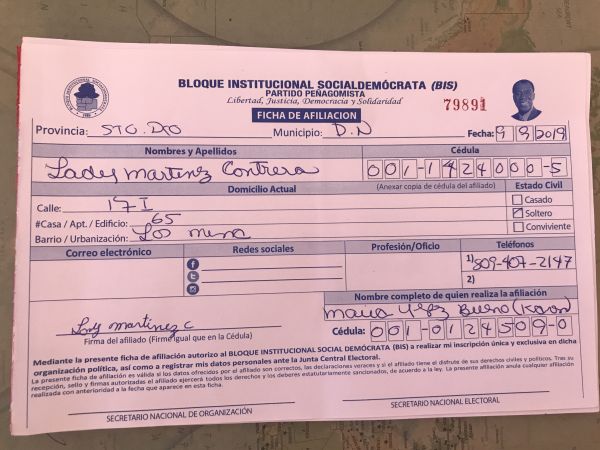 BLOQUE INSTITUCIONAL SOCIALDEMÓCRATA (BIS)
PARTIDO PEÑAGOMISTA
Libertad, Justicia, Democracia y Solidaridad
79891
FICHA DE AFILIACION
Provincia: STO. DTO Municipio: D.N Fecha: 9 8 2019
Nombres y Apellidos Cédula
Lady Martinez Contrera 001-1424000-5
Domicilio Actual (Anexar copia de cédula del afiliado) Estado Civil
Calle: 17 I Casado
#Casa / Apt. / Edificio: 65 Soltero
Barrio / Urbanización: Los mina Conviviente
Correo electrónico Redes sociales Profesión/Oficio Teléfonos
1) 809-407-2147
2)
Nombre completo de quien realiza la afiliación
Bueno
Lady Martinez C
Firma del afiliado (Firme igual que en la Cédula) Cédula: 001-0124509-0
Mediante la presente ficha de afiliación autorizo al BLOQUE INSTITUCIONAL SOCIAL DEMÓCRATA (BIS) a realizar mi inscripción única y exclusiva en dicha
organización política, así como a registrar mis datos personales ante la Junta Central Electoral.
La presente ficha de afiliación es válida si los datos ofrecidos por el afiliado son correctos, las declaraciones veraces y si el afiliado tiene el disfrute de sus derechos civiles y políticos. Tras su
recepción, sello y firmas autorizadas el afiliado ejercerá todos los derechos y los deberes estatutariamente sancionados, de acuerdo a la ley. La presente afiliación anula cualquier afiliación
realizada con anterioridad a la fecha que aparece en esta ficha.
SECRETARIO NACIONAL DE ORGANIZACIÓN SECRETARIO NACIONAL ELECTORAL